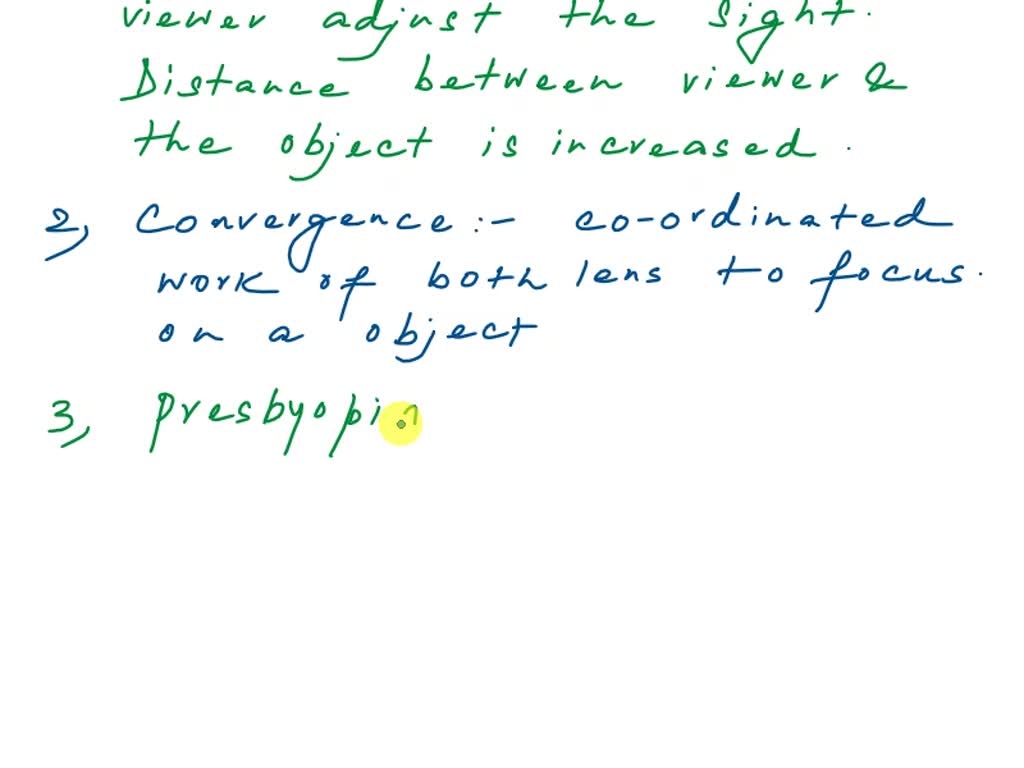 viewer adjust the sight.
Distance between viewer &
the object is increased.
2, Convergence :- co-ordinated
work of both lens to focus.
on a object
3, Presbyopia